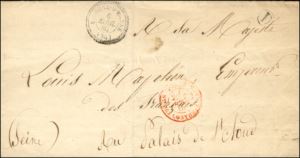 A Sa Majesté
Louis Napoléon, Empereur
des Français
(Seine) Au Palais de St Cloud